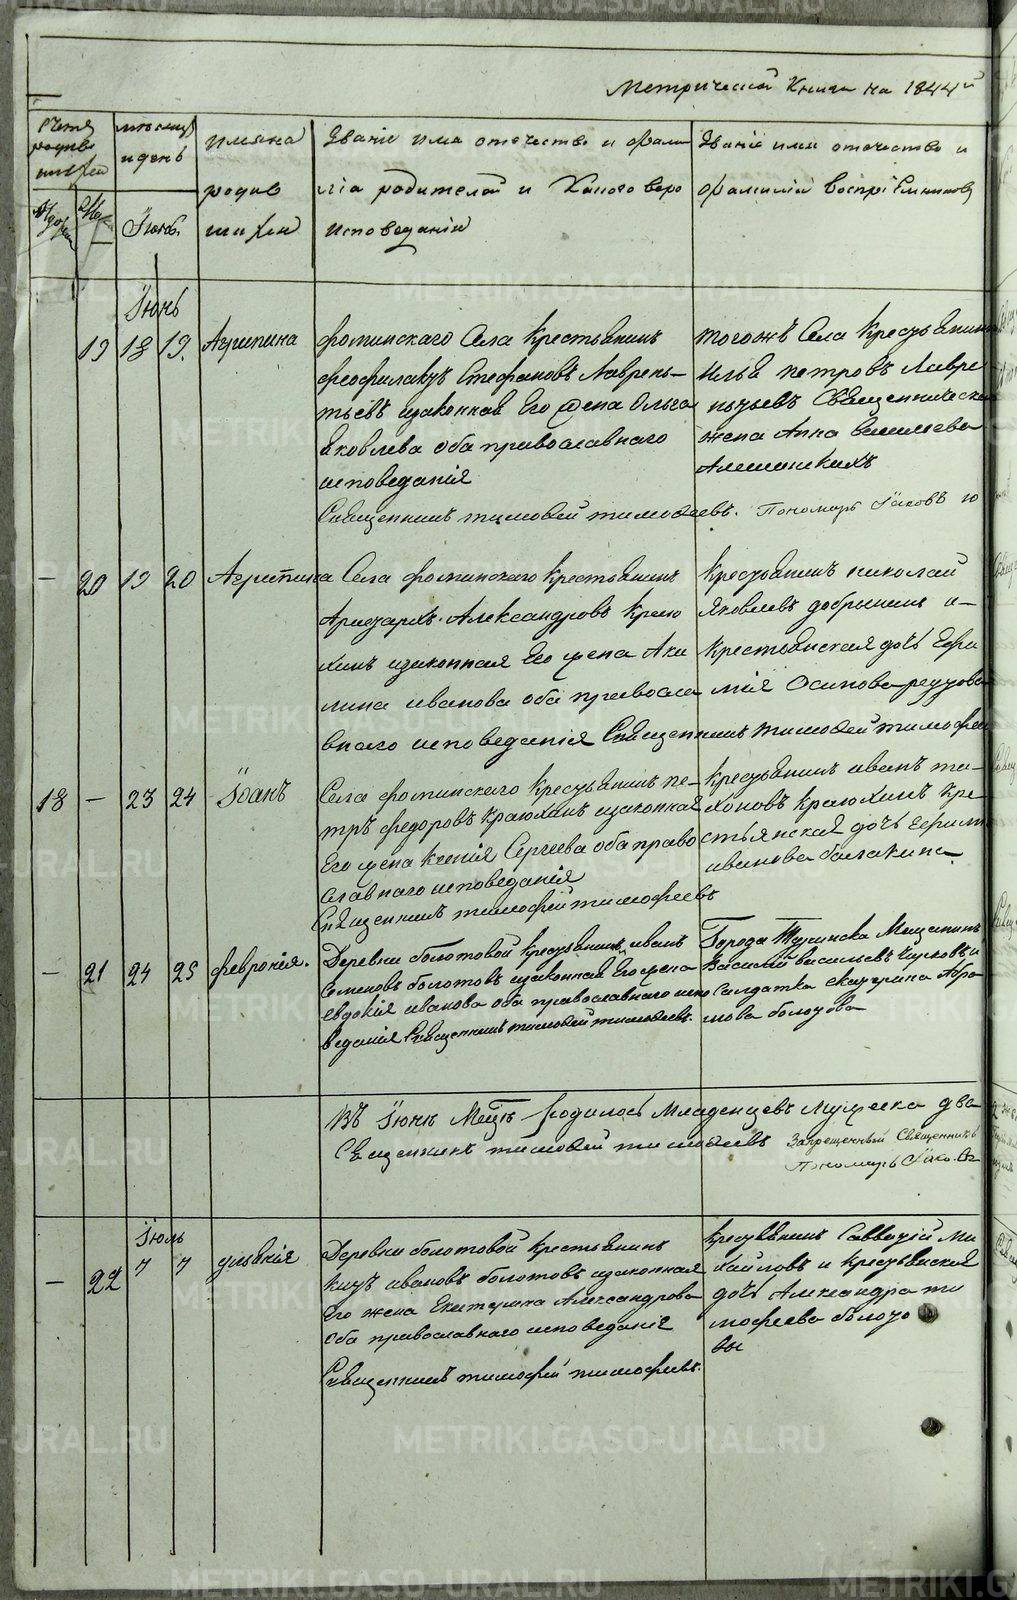 Метрической Книги на 1844й
Счетъ родив шихся
месяцъ и день
имяна родив шихся
Званіе имя отечество и фами лія родителей и Какого веро исповеданія
Званіе имя отечество и Фамилій воспріемниковъ
Іюнь
Іюнь
19 18 19. Агрипина
фоминскаго Села Крестьянинъ
феофилактъ Стефановъ Лаврень–
тьевъ изаконная Его жена Ольга
Яковлева оба православнаго
исповеданія
Священникъ тимофей тимофеевъ. Пономарь Іаковъ
тогожъ Села Крестьянинъ
Илья петровъ Лавре
нтьевъ Священническая
жена Анна Васильева
— 20 19 20 Агрипина
Села фоминскаго Крестьянинъ
Аристархъ Александровъ Краю
хинъ изаконная Его жена Аки
лина иванова оба православ
внаго исповеданія Священникъ тимофей тимофеевъ
Крестьянинъ николай
Яковлевъ добрынинъ и–
Крестьянская дочь Ефи
мія Осипова
18 — 23 24 Іоанъ
Села фоминскаго Крестьянинъ пе–
тръ федоровъ Краюхинъ изаконная
Его жена Ксенія Сергеева оба право
славнаго исповеданія
Священникъ тимофей тимофеевъ
Крестьянинъ иванъ ти–
хоновъ Краюхинъ Кре–
стьянская дочь
иванова балакина
— 21 24 25 феврония.
Деревни болотовой Крестьянинъ иванъ
Семеновъ болотовъ изаконная Его жена
евдокія иванова оба православнаго испо
веданія Священникъ тимофей тимофеевъ.
Города Туринска Мещанинъ
Василий васильевъ Чирковъ и
Салдатка екатерина Абра
мова болотова
Въ Іюне Мцъ родилось Младенцевъ Мужеска два
Священникъ тимофей тимофеевъ Запрещенный Священникъ
Пономарь Іако.
Іюль
— 22 7 7 улиянія
Деревни болотовой Крестьянинъ
Китъ ивановъ болотовъ изаконная
Его жена Екатерина Александрова
Оба православнаго исповеданія
Священникъ тимофей тимофеевъ.
Крестьянинъ Савватій Ми
хайловъ и Крестьянская
дочь Александра ти
мофеева болото
вы
METRIKI.GASO-URAL.RU